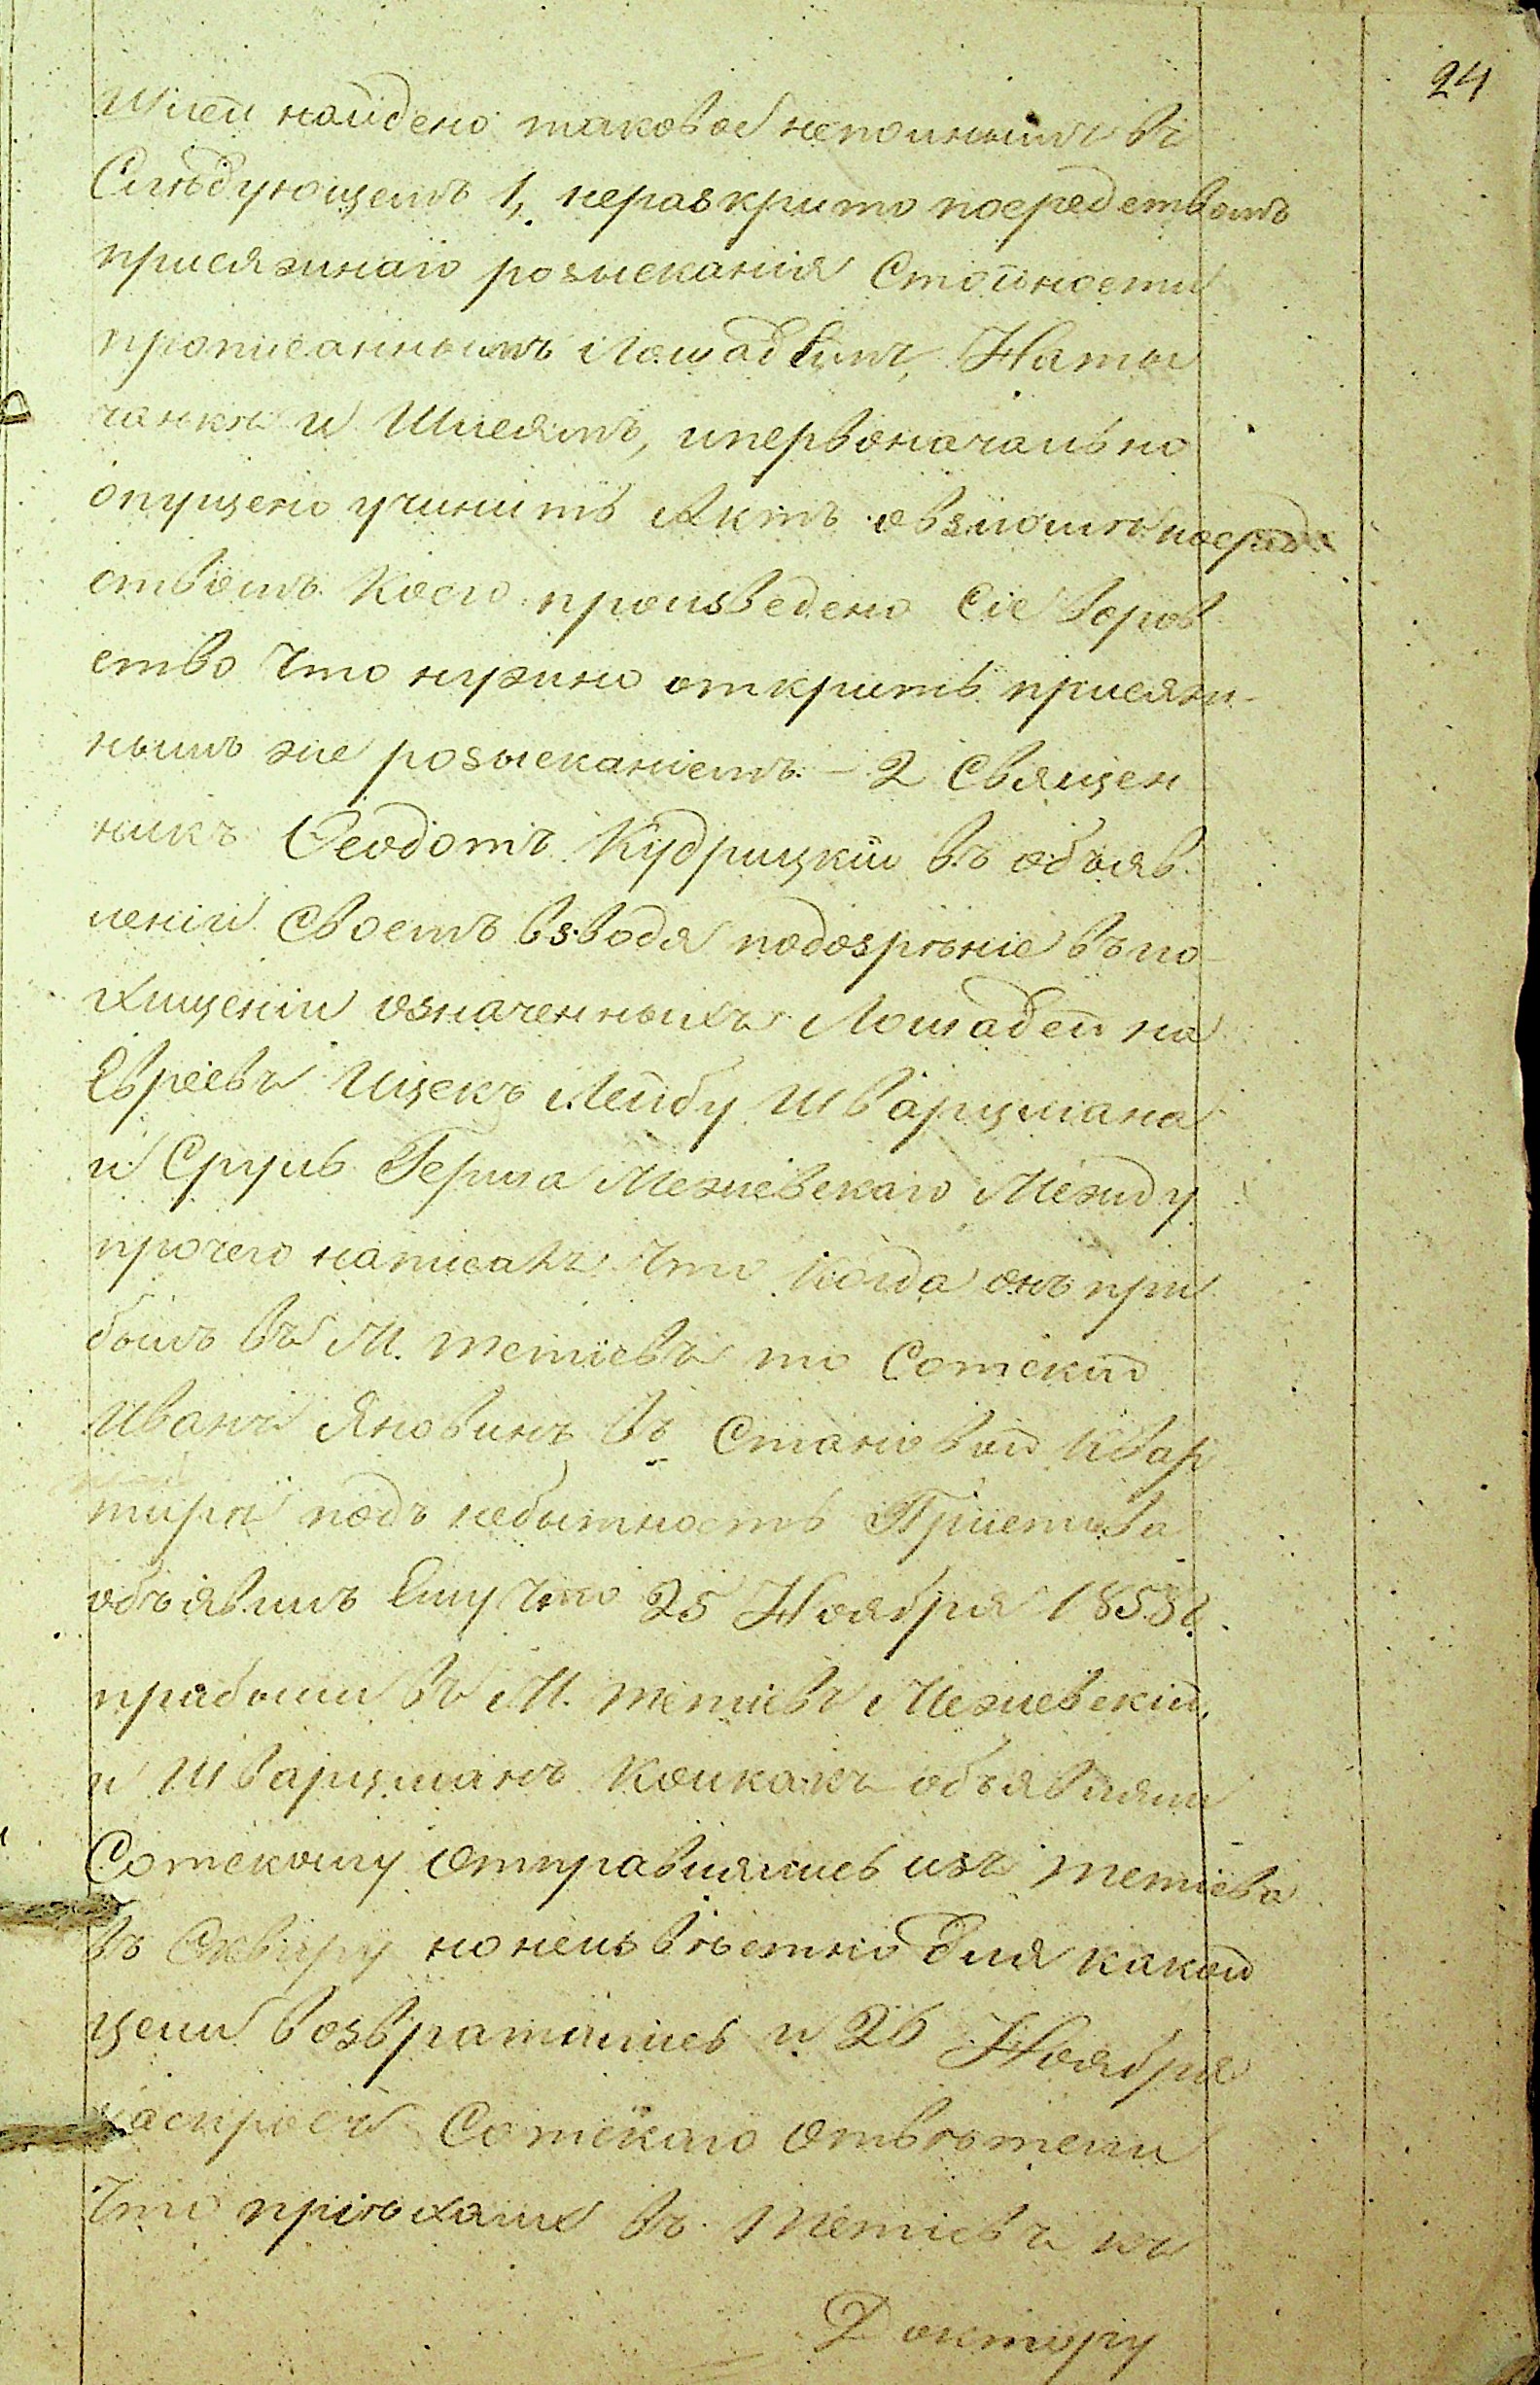 24
Шлей найдено таковое неполнымъ въ
Слѣдующемъ 1, нераскрито посредствомъ
присяжнаго розысканія Стоимости
прописаннымъ Лошадямъ, Наты
чанкѣ и Шлеямъ, ипервоначально
опущено учинить Актъ овзломѣ посред
ствомъ коего произведено Сіе воров
ство Что нужно открить присяж-
нымъ же розысканіемъ. – 2 Священ
никъ Ѳеодотъ Кудрицкій въ объяв
леніи своемъ взводя подозрѣніе въ по-
хищеніи означенныхъ Лошадей на
Евреевъ Ицекъ Лейбу Шварцмана
и Сруль Герша Межіевскаго Между
прочего написалъ Что когда онъ при
былъ въ М. Тетіевъ то Сотскій
Иванъ Яновинъ въ Становой квар
тирѣ подъ небытность Пристава
объявилъ Ему что 25 Ноября 1853 г.
прабыли въ М. Тетіевъ Межіевскій,
и Шварцманъ коикакъ объявляли
Сотскому отправлялись изъ Тетіева
въ Сквиру но неизвѣстно для какой
цели возвратились и 26 Ноября
наспросъ Сотскаго отвѣтели
Что пріѣхали въ Тетіевъ къ
Доктору